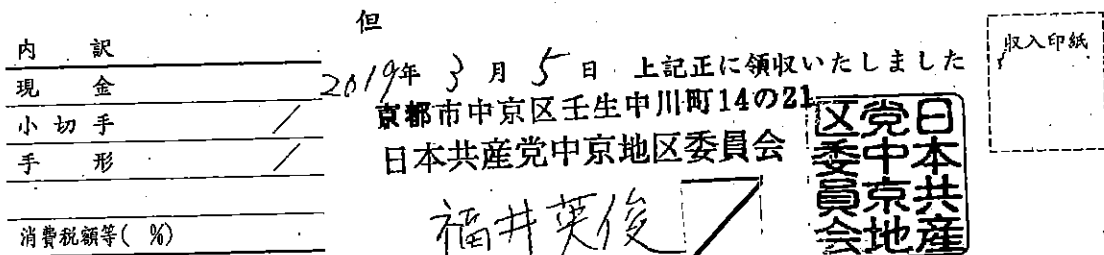 但
内 訳
現 金
小切手 /
手 形 /
消費税額等( %)
2019年 3 月 5 日 上記正に領収いたしました
京都市中京区壬生中川町14の21
日本共産党中京地区委員会
福井英俊
日本共産
党中京地
区委員会
収入印紙